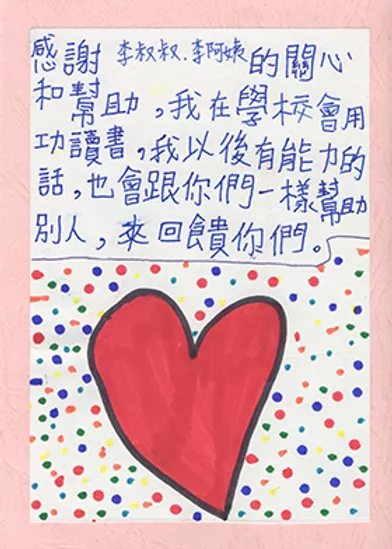 感謝 李叔叔.李阿姨 的關心
和幫助，我在學校會用
功讀書，我以後有能力的
話，也會跟你們一樣幫助
別人，來回饋你們。